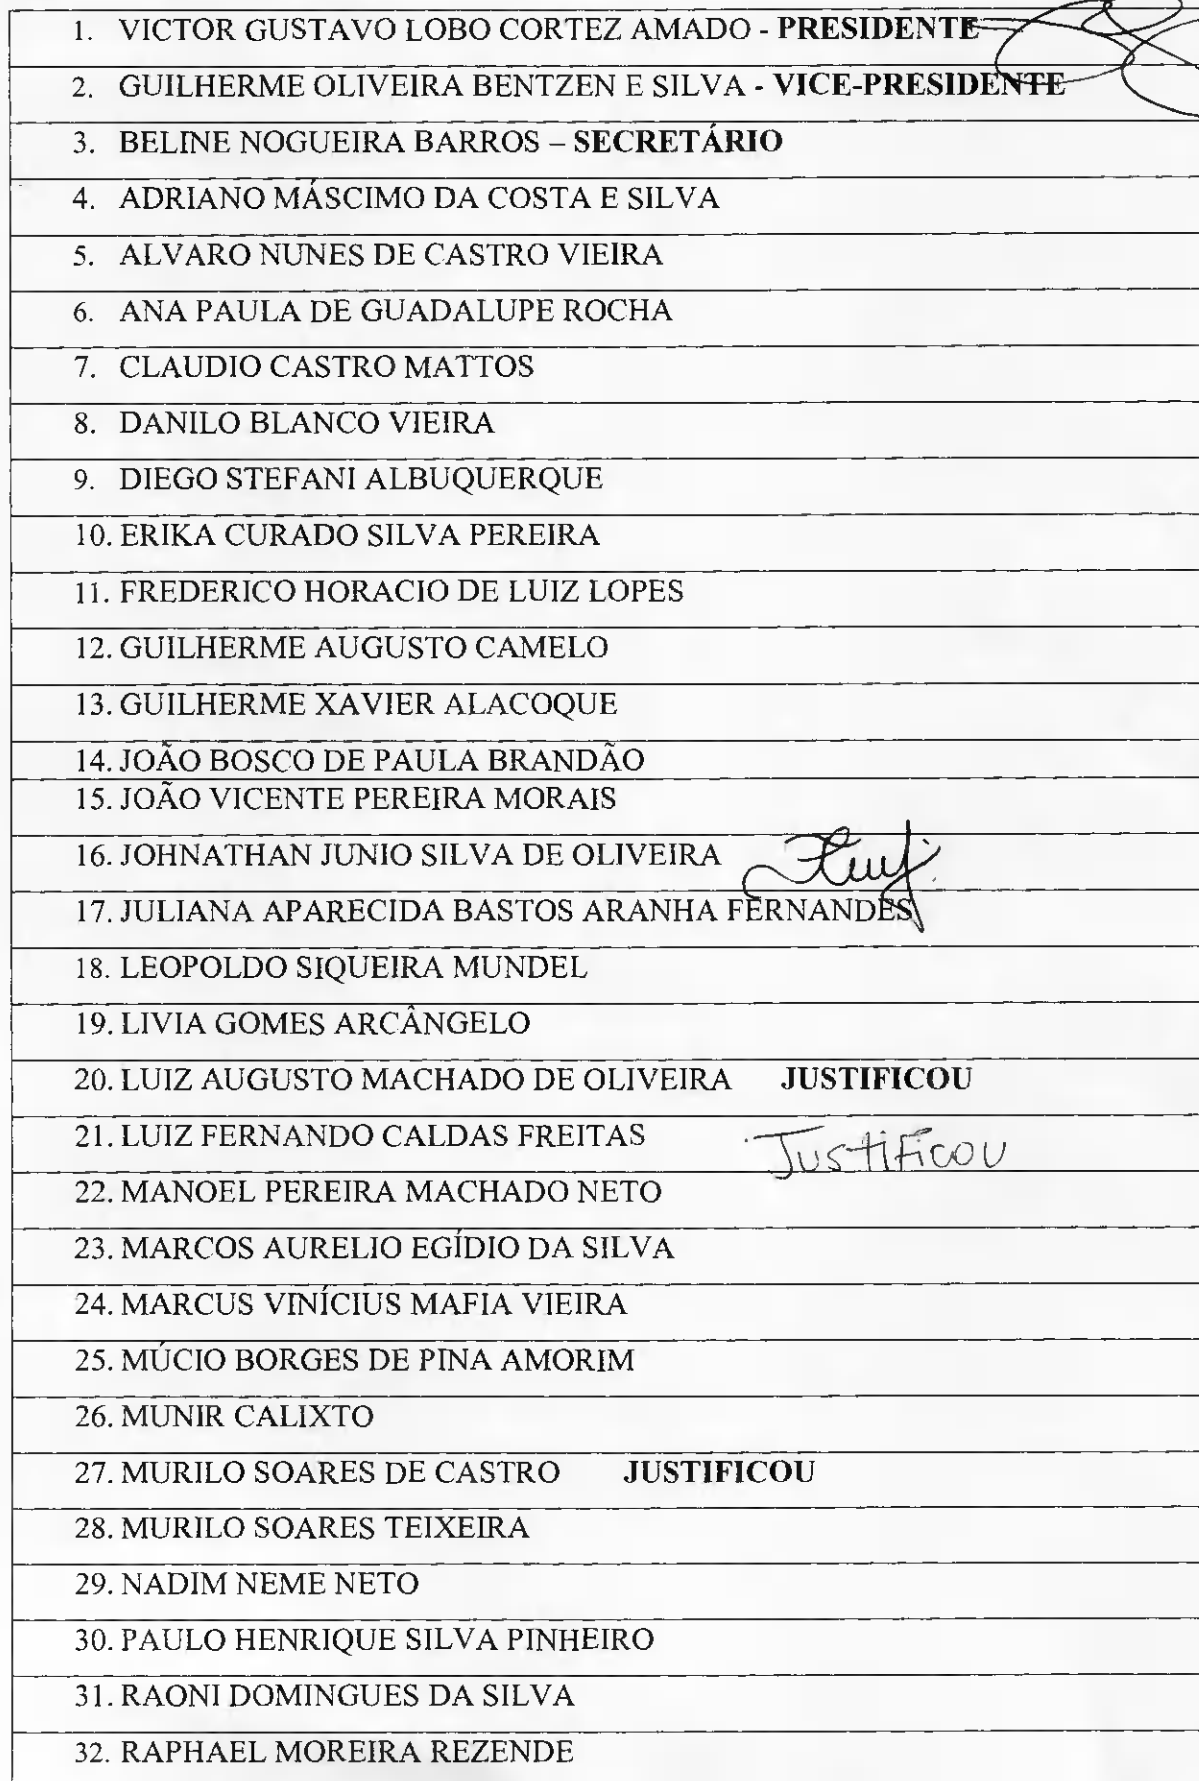 1. VICTOR GUSTAVO LOBO CORTEZ AMADO - PRESIDENTE
2. GUILHERME OLIVEIRA BENTZEN E SILVA - VICE-PRESIDENTE
3. BELINE NOGUEIRA BARROS – SECRETÁRIO
4. ADRIANO MÁSCIMO DA COSTA E SILVA
5. ALVARO NUNES DE CASTRO VIEIRA
6. ANA PAULA DE GUADALUPE ROCHA
7. CLAUDIO CASTRO MATTOS
8. DANILO BLANCO VIEIRA
9. DIEGO STEFANI ALBUQUERQUE
10. ERIKA CURADO SILVA PEREIRA
11. FREDERICO HORACIO DE LUIZ LOPES
12. GUILHERME AUGUSTO CAMELO
13. GUILHERME XAVIER ALACOQUE
14. JOÃO BOSCO DE PAULA BRANDÃO
15. JOÃO VICENTE PEREIRA MORAIS
16. JOHNATHAN JUNIO SILVA DE OLIVEIRA
17. JULIANA APARECIDA BASTOS ARANHA FERNANDES
18. LEOPOLDO SIQUEIRA MUNDEL
19. LIVIA GOMES ARCÂNGELO
20. LUIZ AUGUSTO MACHADO DE OLIVEIRA JUSTIFICOU
21. LUIZ FERNANDO CALDAS FREITAS Justificou
22. MANOEL PEREIRA MACHADO NETO
23. MARCOS AURELIO EGÍDIO DA SILVA
24. MARCUS VINÍCIUS MAFIA VIEIRA
25. MÚCIO BORGES DE PINA AMORIM
26. MUNIR CALIXTO
27. MURILO SOARES DE CASTRO JUSTIFICOU
28. MURILO SOARES TEIXEIRA
29. NADIM NEME NETO
30. PAULO HENRIQUE SILVA PINHEIRO
31. RAONI DOMINGUES DA SILVA
32. RAPHAEL MOREIRA REZENDE